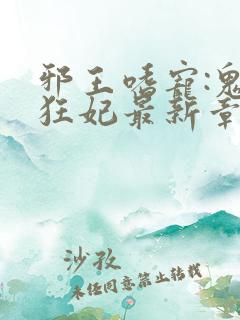 邪王嗜宠:鬼
狂妃最新章
沙孜
未经同意禁止转载